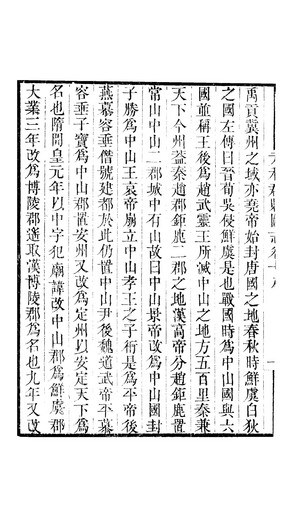 禹貢冀州之域亦堯帝始封唐國之地春秋時鮮虞白狄
之國左傳曰晉荀吳侵鮮虞是也戰國時爲中山國與六
國並稱王後爲趙武靈王所滅中山之地方五百里秦兼
天下今州蓋秦趙郡鉅鹿二郡之地漢高帝分趙鉅鹿置
常山中山二郡城中有山故曰中山景帝改爲中山國封
子勝爲中山王哀帝崩立中山孝王之子衎是爲平帝後
燕慕容垂僭號建都於此仍置中山尹後魏道武帝平慕
容垂子寶爲中山郡置安州又改爲定州以安定天下爲
名也隋開皇元年以中字犯廟諱改中山郡爲鮮虞郡
大業三年改爲博陵郡遥取漢博陵郡爲名也九年又改